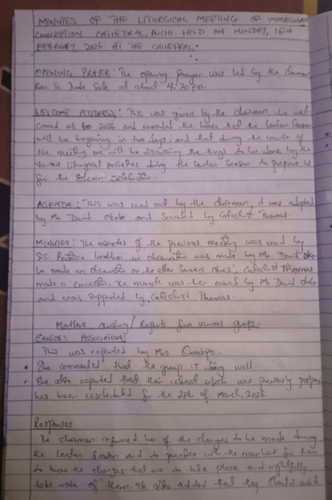 MINUTES OF THE LITURGICAL MEETING OF IMMACULATE
CONCEPTION CATHEDRAL, AUCHI. HELD ON MONDAY, 16TH
FEBRUARY, 2026 AT THE CATHEDRAL.
OPENING PRAYER: The opening Prayer was led by the Chairman
Rev. Fr. Jude at about 4:30pm.
WELCOME ADDRESS: This was given by the chairman, he wel-
comed us to 2026 and reminded the house that the Lenten Season
will be beginning in two days, and that during the course of
the meeting we will be discussing the things to be done by the
various liturgical societies during the Lenten Season to prepare us
for the Solemn Celebration.
AGENDA: This was read out by the chairman, it was adopted
by Mr David and Seconded by Catechist Thomas.
MINUTES: The minutes of the previous meeting was read by
an observation was made by Mr David
he made an observation on Catechist Thomas
made a correction. The minute was then moved by Mr David
and was supported by Catechist Thomas.
Matters arising / Reports from various groups.
ASSOCIATION:
This was reported by Mrs
She commented that the group is doing well
She also reported that their retreat which was previously
has been rescheduled for the 28th of March, 2026.
Responses
The chairman informed us of the changes to be made during
the Lenten Season and to with the members for them
to know the changes that are to take place and
take note of them. He also added that they should not